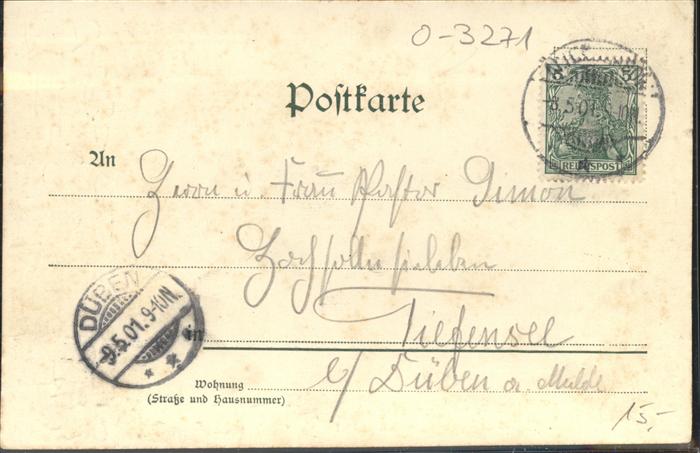 O-3271
REICHSPOST
8.5.01.
Postkarte
An
Herrn u. Frau Pastor Simon
Tiefensee
b/ Düben a. Mulde
in
DÜBEN
9.5.01. 9-10N.
Wohnung
(Straße und Hausnummer)
15,-